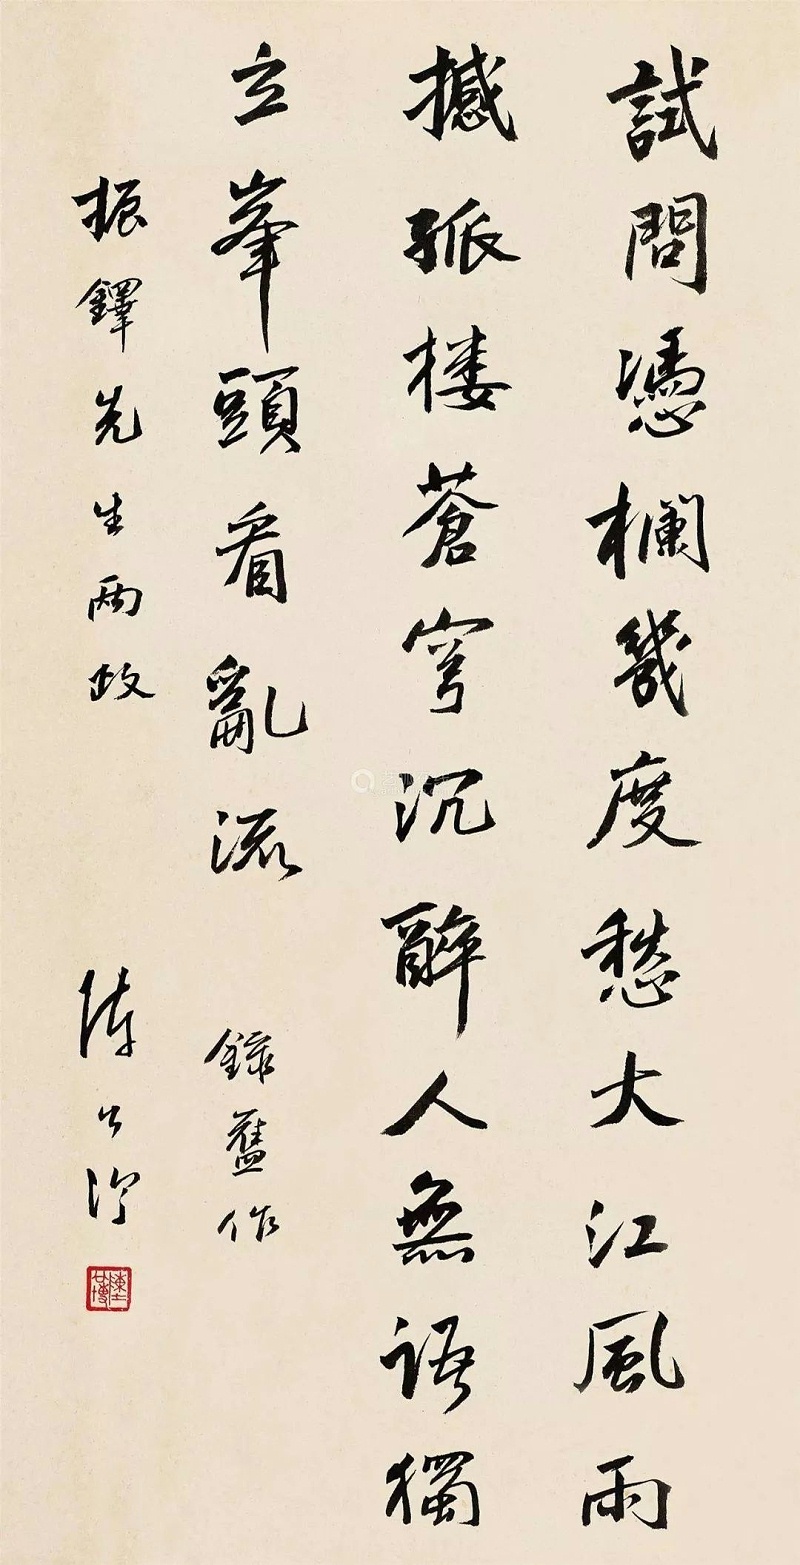 試問憑欄幾度愁大江風雨
撼孤楼蒼穹沉醉人無語獨
立峯頭看亂流
錄舊作
振鐸先生兩政
陳公博